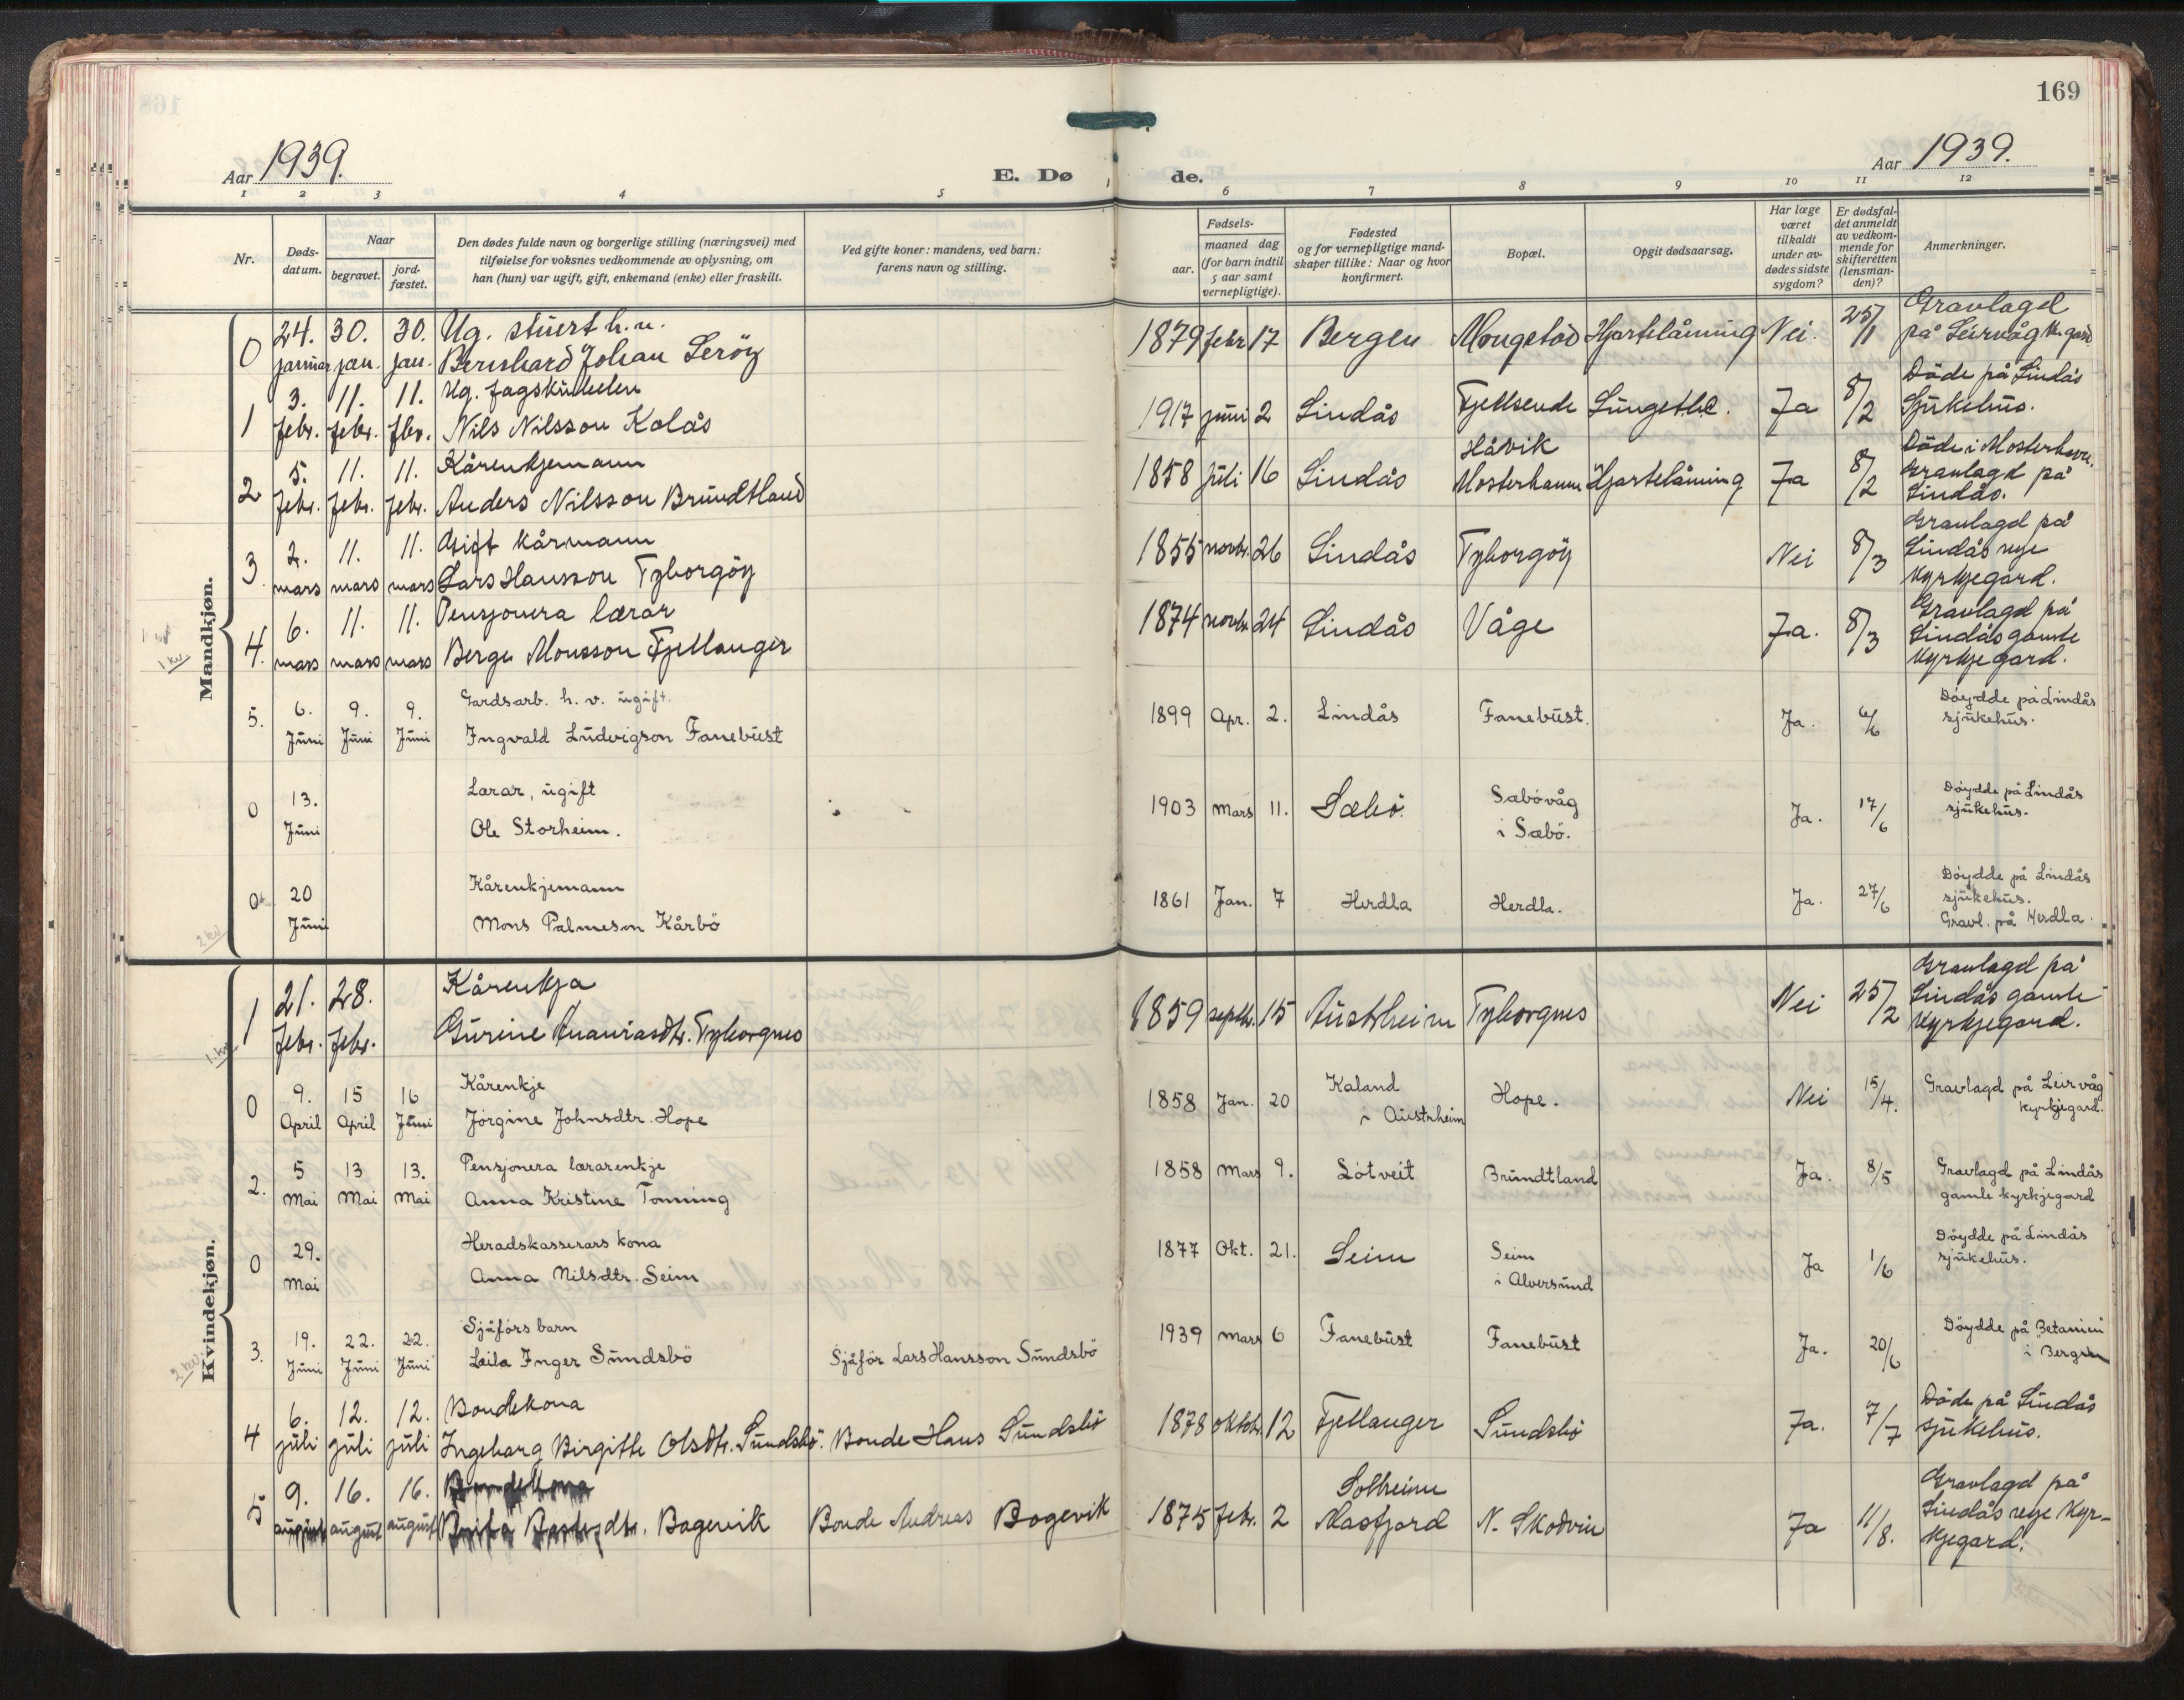 169
Aar 1939.
E. Dø
de.
Aar 1939.
1 2 3 4 5 6 7 8 9 10 11 12
Nr.
Døds-
datum.
Naar
begravet.
jord-
fæstet.
Den dødes fulde navn og borgerlige stilling (næringsvei) med
tilføielse for voksnes vedkommende av oplysning, om
han (hun) var ugift, gift, enkemand (enke) eller fraskilt.
Ved gifte koner: mandens, ved barn:
farens navn og stilling.
Fødsels-
aar.
maaned dag
(for barn indtil
5 aar samt
vernepligtige).
Fødested
og for vernepligtige mand-
skaper tillike: Naar og hvor
konfirmert.
Bopæl.
Opgit dødsaarsag.
Har læge
været
tilkaldt
under av-
dødes sidste
sygdom?
Er dødsfal-
det anmeldt
av vedkom-
mende for
skifteretten
(lensman-
den)?
Anmerkninger.
Mandkjøn.
0 24. januar 30. jan. 30. jan. Ug. stuert h.v.
Bernhard Johan Lerøy 1879 febr 17 Bergen Mongstad Hjartelåming Nei. 25/1 Gravlagd
på Leirvåg k.gard
1 3. febr. 11. febr. 11. febr. Ug. fagskuleelev
Nils Nilsson Kolås 1917 juni 2 Lindås Fjellsende Lungetbc. Ja 8/2 Döde på Lindås
Sjukehus.
2 5. febr. 11. febr. 11. febr. Kårenkjemann
Anders Nilsson Brundtland 1858 juli 16 Lindås Håvik
Mosterhamn Hjartelåming Ja 8/2 Döde i Mosterhavn.
Gravlagd på
Lindås.
3. 2. mars 11. mars 11. mars Gift kårmann
Lars Hansson Tyborgöy 1855 novbr. 26 Lindås Tyborgöy Nei 8/3 Gravlagd på
Lindås nye
Kyrkjegard.
4. 6. mars 11. mars 11. mars Pensjonera lærar
Berge Monsson Fjellanger 1874 novbr. 24 Lindås Våge Ja. 8/3 Gravlagd på
Lindås gamle
Kyrkjegard.
5. 6. Juni 9. Juni 9. Juni Gardsarb. h. v. ugift.
Ingvald Ludvigson Fanebust 1899 Apr. 2. Lindås Fanebust. Ja. 6/6 Döydde på Lindås
sjukehus.
0 13. Juni Lærar, ugift
Ole Storheim. 1903 Mars 11. Sæbö. Sæbövåg
i Sæbö. Ja. 17/6 Döydde på Lindås
sjukehus.
0 20 Juni Kårenkjemann
Mons Palmeson Kårbö 1861 Jan. 7 Herdla Herdla. Ja. 27/6 Döydde på Lindås
sjukehus.
Gravl. på Herdla.
Kvindekjøn.
1 21. febr. 28. febr. Kårenkja
Gurine Ananiasdtr. Tyborgnes 1859 septbr. 15 Austrheim Tyborgnes Nei 25/2 Gravlagd på
Lindås gamle
Kyrkjegard.
0 9. April 15 April 16 Juni Kårenkje
Jörgine Johnsdtr. Hope 1858 Jan. 20 Kaland
i Austrheim Hope. Nei 15/4. Gravlagd på Leirvåg
kyrkjegard.
2. 5 Mai 13 Mai 13. Mai Pensjonera lærarenkje
Anna Kristine Tonning 1858 Mars 9. Lötveit Brundtland Ja. 8/5 Gravlagd på Lindås
gamle kyrkjegard
0 29. Mai Heradskasserars kona
Anna Nilsdtr. Seim 1877 Okt. 21. Seim Seim
i Alversund Ja 1/6 Döydde på Lindås
sjukehus.
3. 19. Juni 22. Juni 22. Juni Sjåförs barn
Laila Inger Sundsbö Sjåför Lars Hansson Sundsbö 1939 mars 6 Fanebust Fanebust Ja. 20/6 Döydde på "Betanien"
i Bergen
4 6. juli 12. juli 12. juli Bondekona
Ingeborg Birgitte Olsdtr. Sundsbö. Bonde Hans Sundsbö 1878 oktobr. 12 Fjellanger Sundsbö Ja. 7/7 Döde på Lindås
sjukehus.
5 9. august 16. august 16. august Bondekona
Brita dtr. Bogevik Bonde Andreas Bogevik 1875 febr. 2 Solheim
Masfjord N. Skodvin Ja 11/8. Gravlagd på
Lindås nye Kyr-
kjegard.